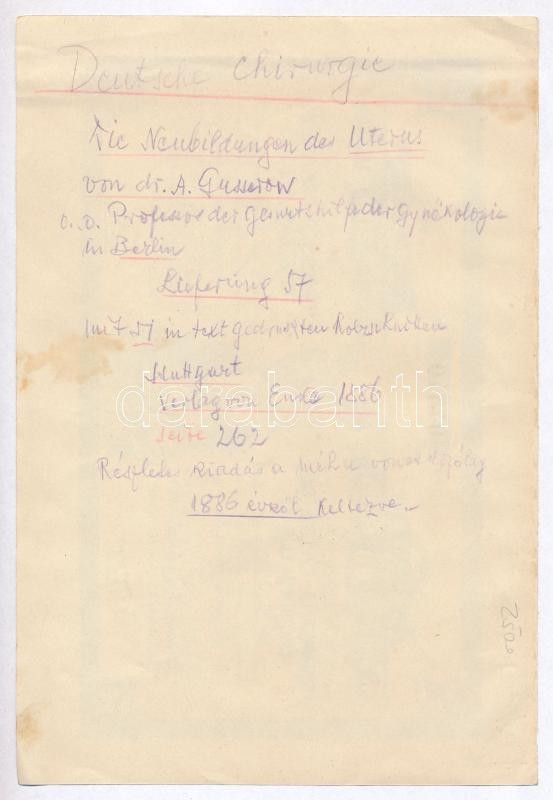 Deutsche Chirurgie
Die Neubildungen des Uterus
von dr. A. Gusserow
o. ö. Professor der Geburtshilfe der Gynäkologie
in Berlin
Lieferung 57
in text gedruckten
Stuttgart
Verlag von Enke 1886
262
Részletes kiadás a méhre
1886 évről Keltezve.
2500
darabanth